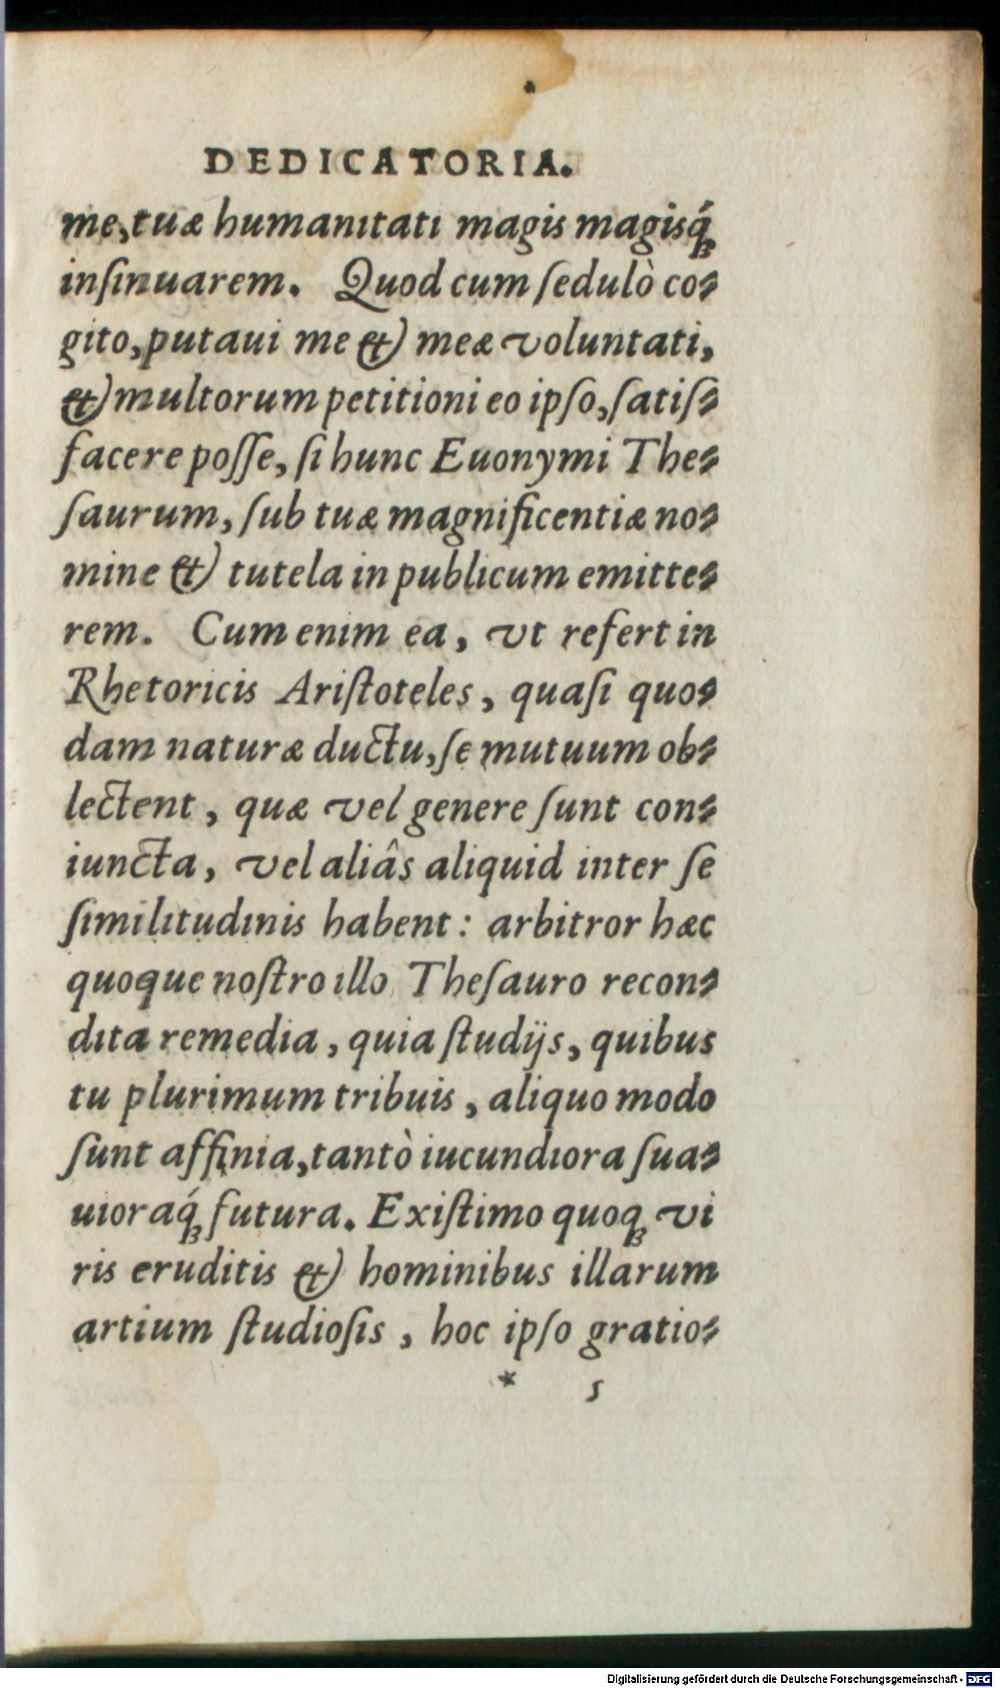 DEDICATORIA.
me, tuæ humanitati magis magisq́;
inſinuarem. Quod cum ſedulò co-
gito, putaui me & meæ voluntati,
& multorum petitioni eo ipſo, ſatiſ-
facere poſſe, ſi hunc Euonymi The-
ſaurum, ſub tuæ magnificentiæ no-
mine & tutela in publicum emitte-
rem. Cum enim ea, vt refert in
Rhetoricis Ariſtoteles, quaſi quo-
dam naturæ ductu, ſe mutuum ob-
lectent, quæ vel genere ſunt con-
iuncta, vel aliâs aliquid inter ſe
ſimilitudinis habent: arbitror hæc
quoque noſtro illo Theſauro recon-
dita remedia, quia ſtudijs, quibus
tu plurimum tribuis, aliquo modo
ſunt affinia, tantò iucundiora ſua-
uioraq́; futura. Exiſtimo quoq; vi
ris eruditis & hominibus illarum
artium ſtudioſis, hoc ipſo gratio-
* 5
Digitalisierung gefördert durch die Deutsche Forschungsgemeinschaft - DFG